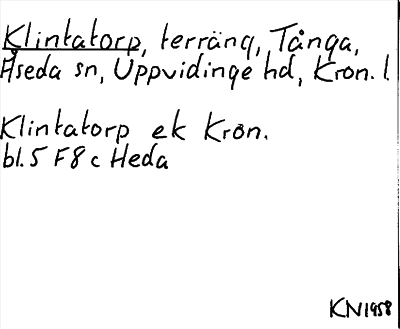 Klintatorp, terräng, Tånga,
Åseda sn, Uppvidinge hd, Kron. l.
Klintatorp ek Kron.
bl. 5 F 8 c Heda
KN 1958